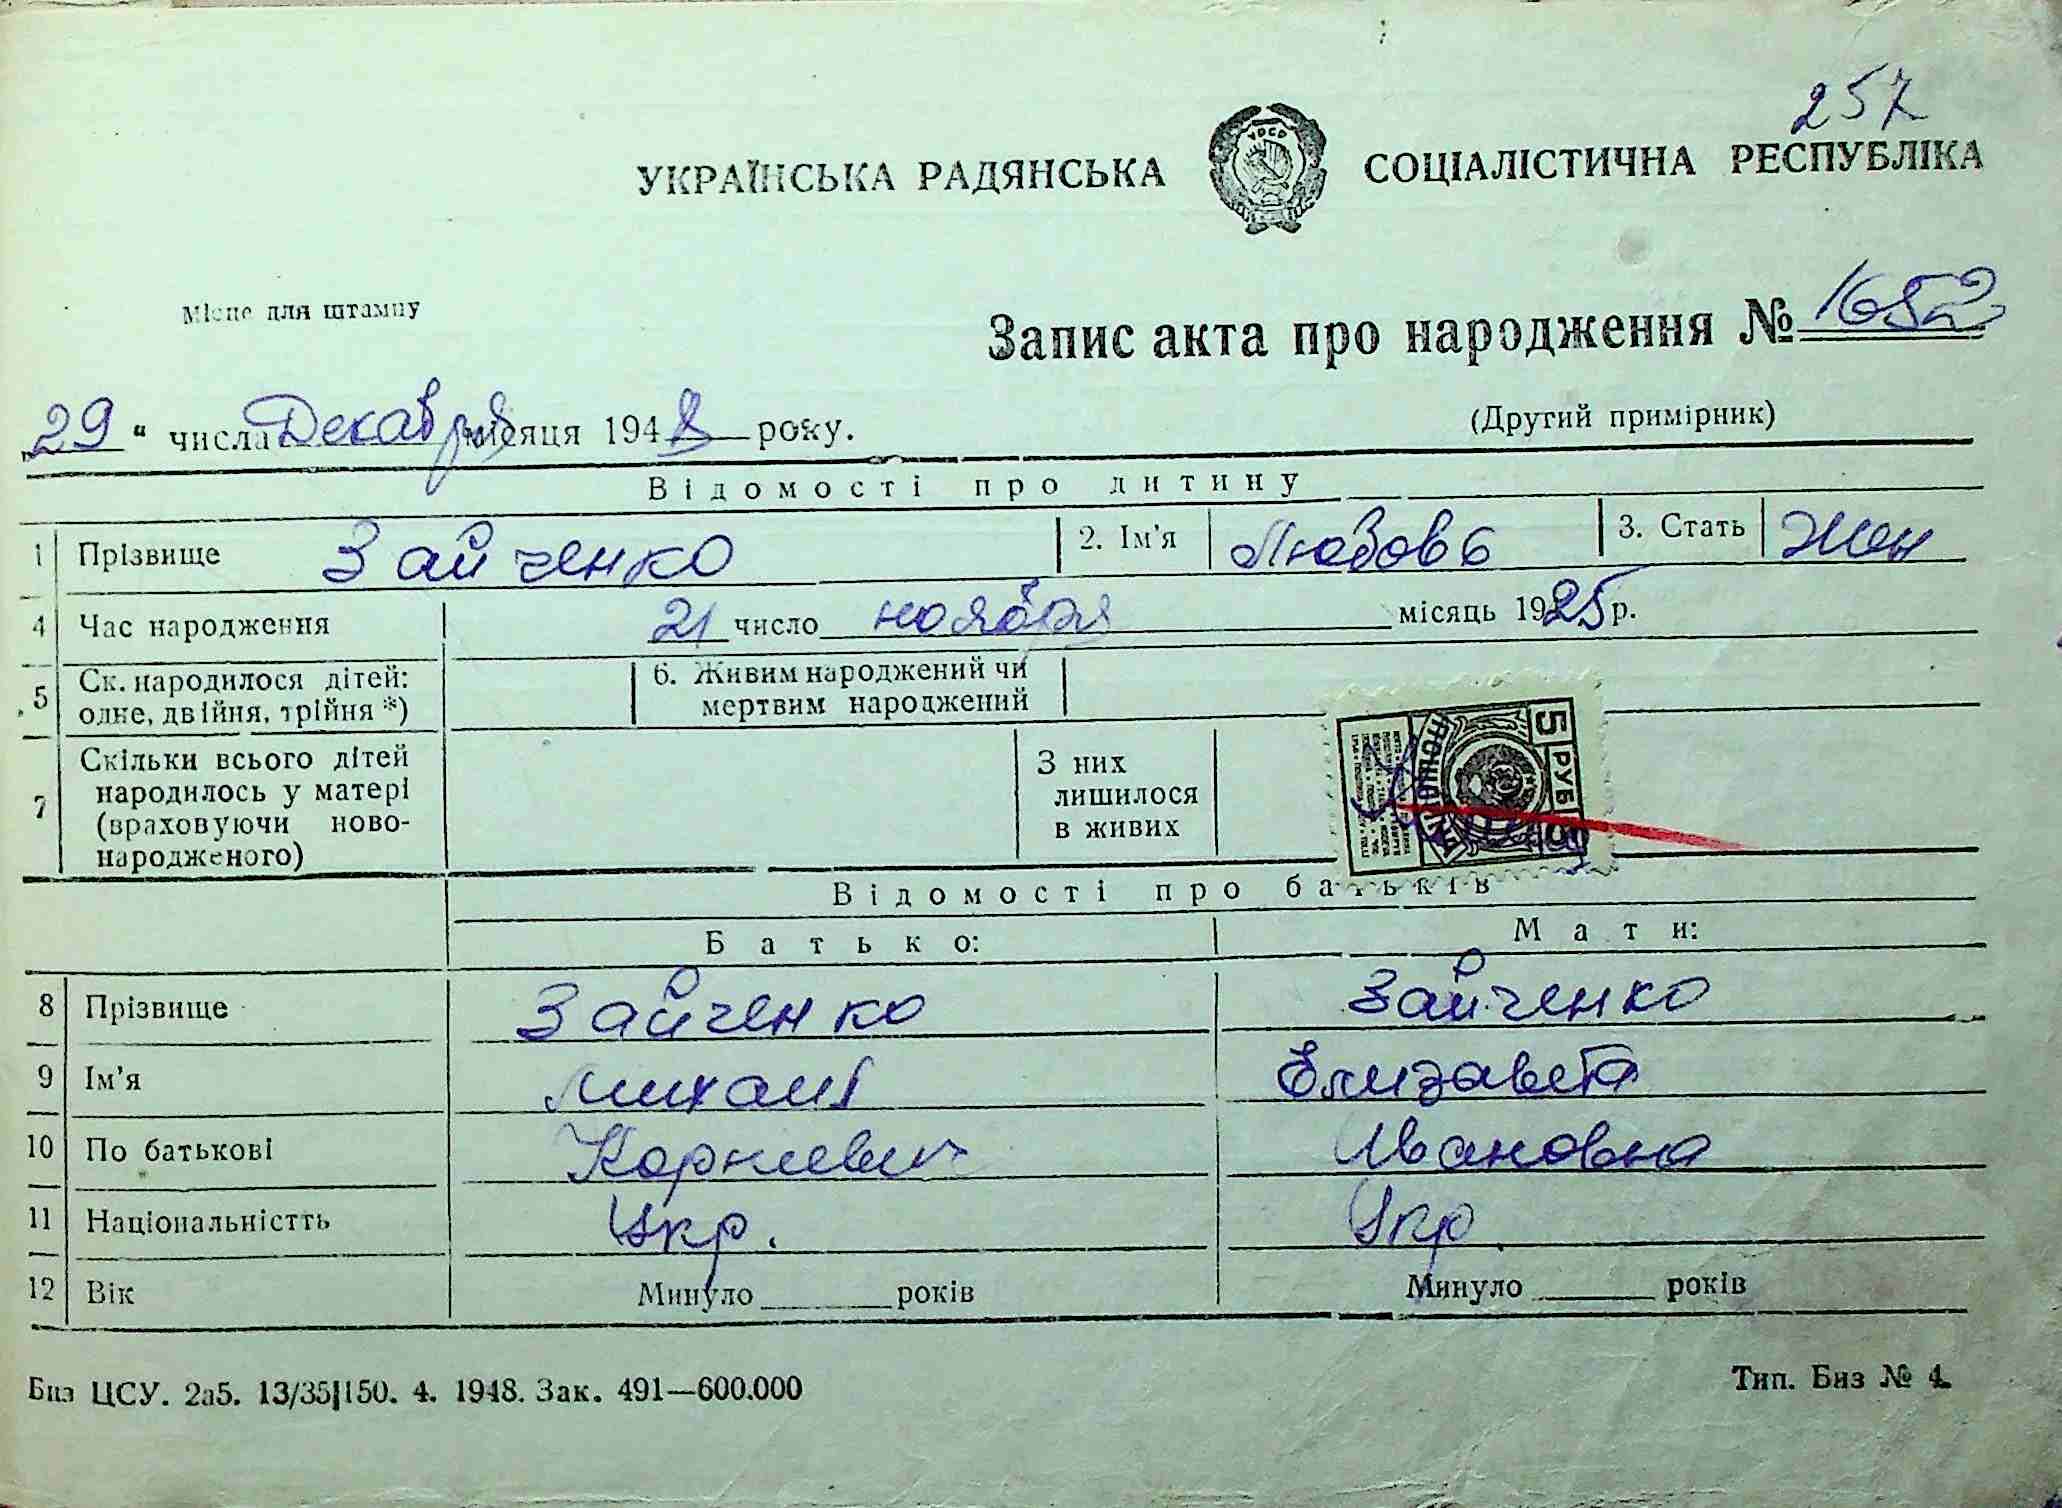 257
УКРАЇНСЬКА РАДЯНСЬКА СОЦІАЛІСТИЧНА РЕСПУБЛІКА
УРСР
Місце для штампу
Запис акта про народження № 1652
(Другий примірник)
29 " числа Декабря місяця 1948 року.
Відомості про дитину
1 Прізвище Зайченко 2. Ім'я Любовь 3. Стать Жен
4 Час народження 21 число ноября місяць 1925 р.
5 Ск. народилося дітей: одне, двійня, трійня *) 6. Живим народжений чи мертвим народжений
7 Скільки всього дітей народилось у матері (враховуючи новонародженого) З них лишилося в живих
5 РУБ 5
Відомості про батьків
Батько: Мати:
8 Прізвище Зайченко Зайченко
9 Ім'я Михаил Елизавета
10 По батькові Корнеевич Ивановна
11 Національністть Укр. Укр.
12 Вік Минуло років Минуло років
Биз ЦСУ. 2а5. 13/35|150. 4. 1948. Зак. 491—600.000 Тип. Биз № 4.